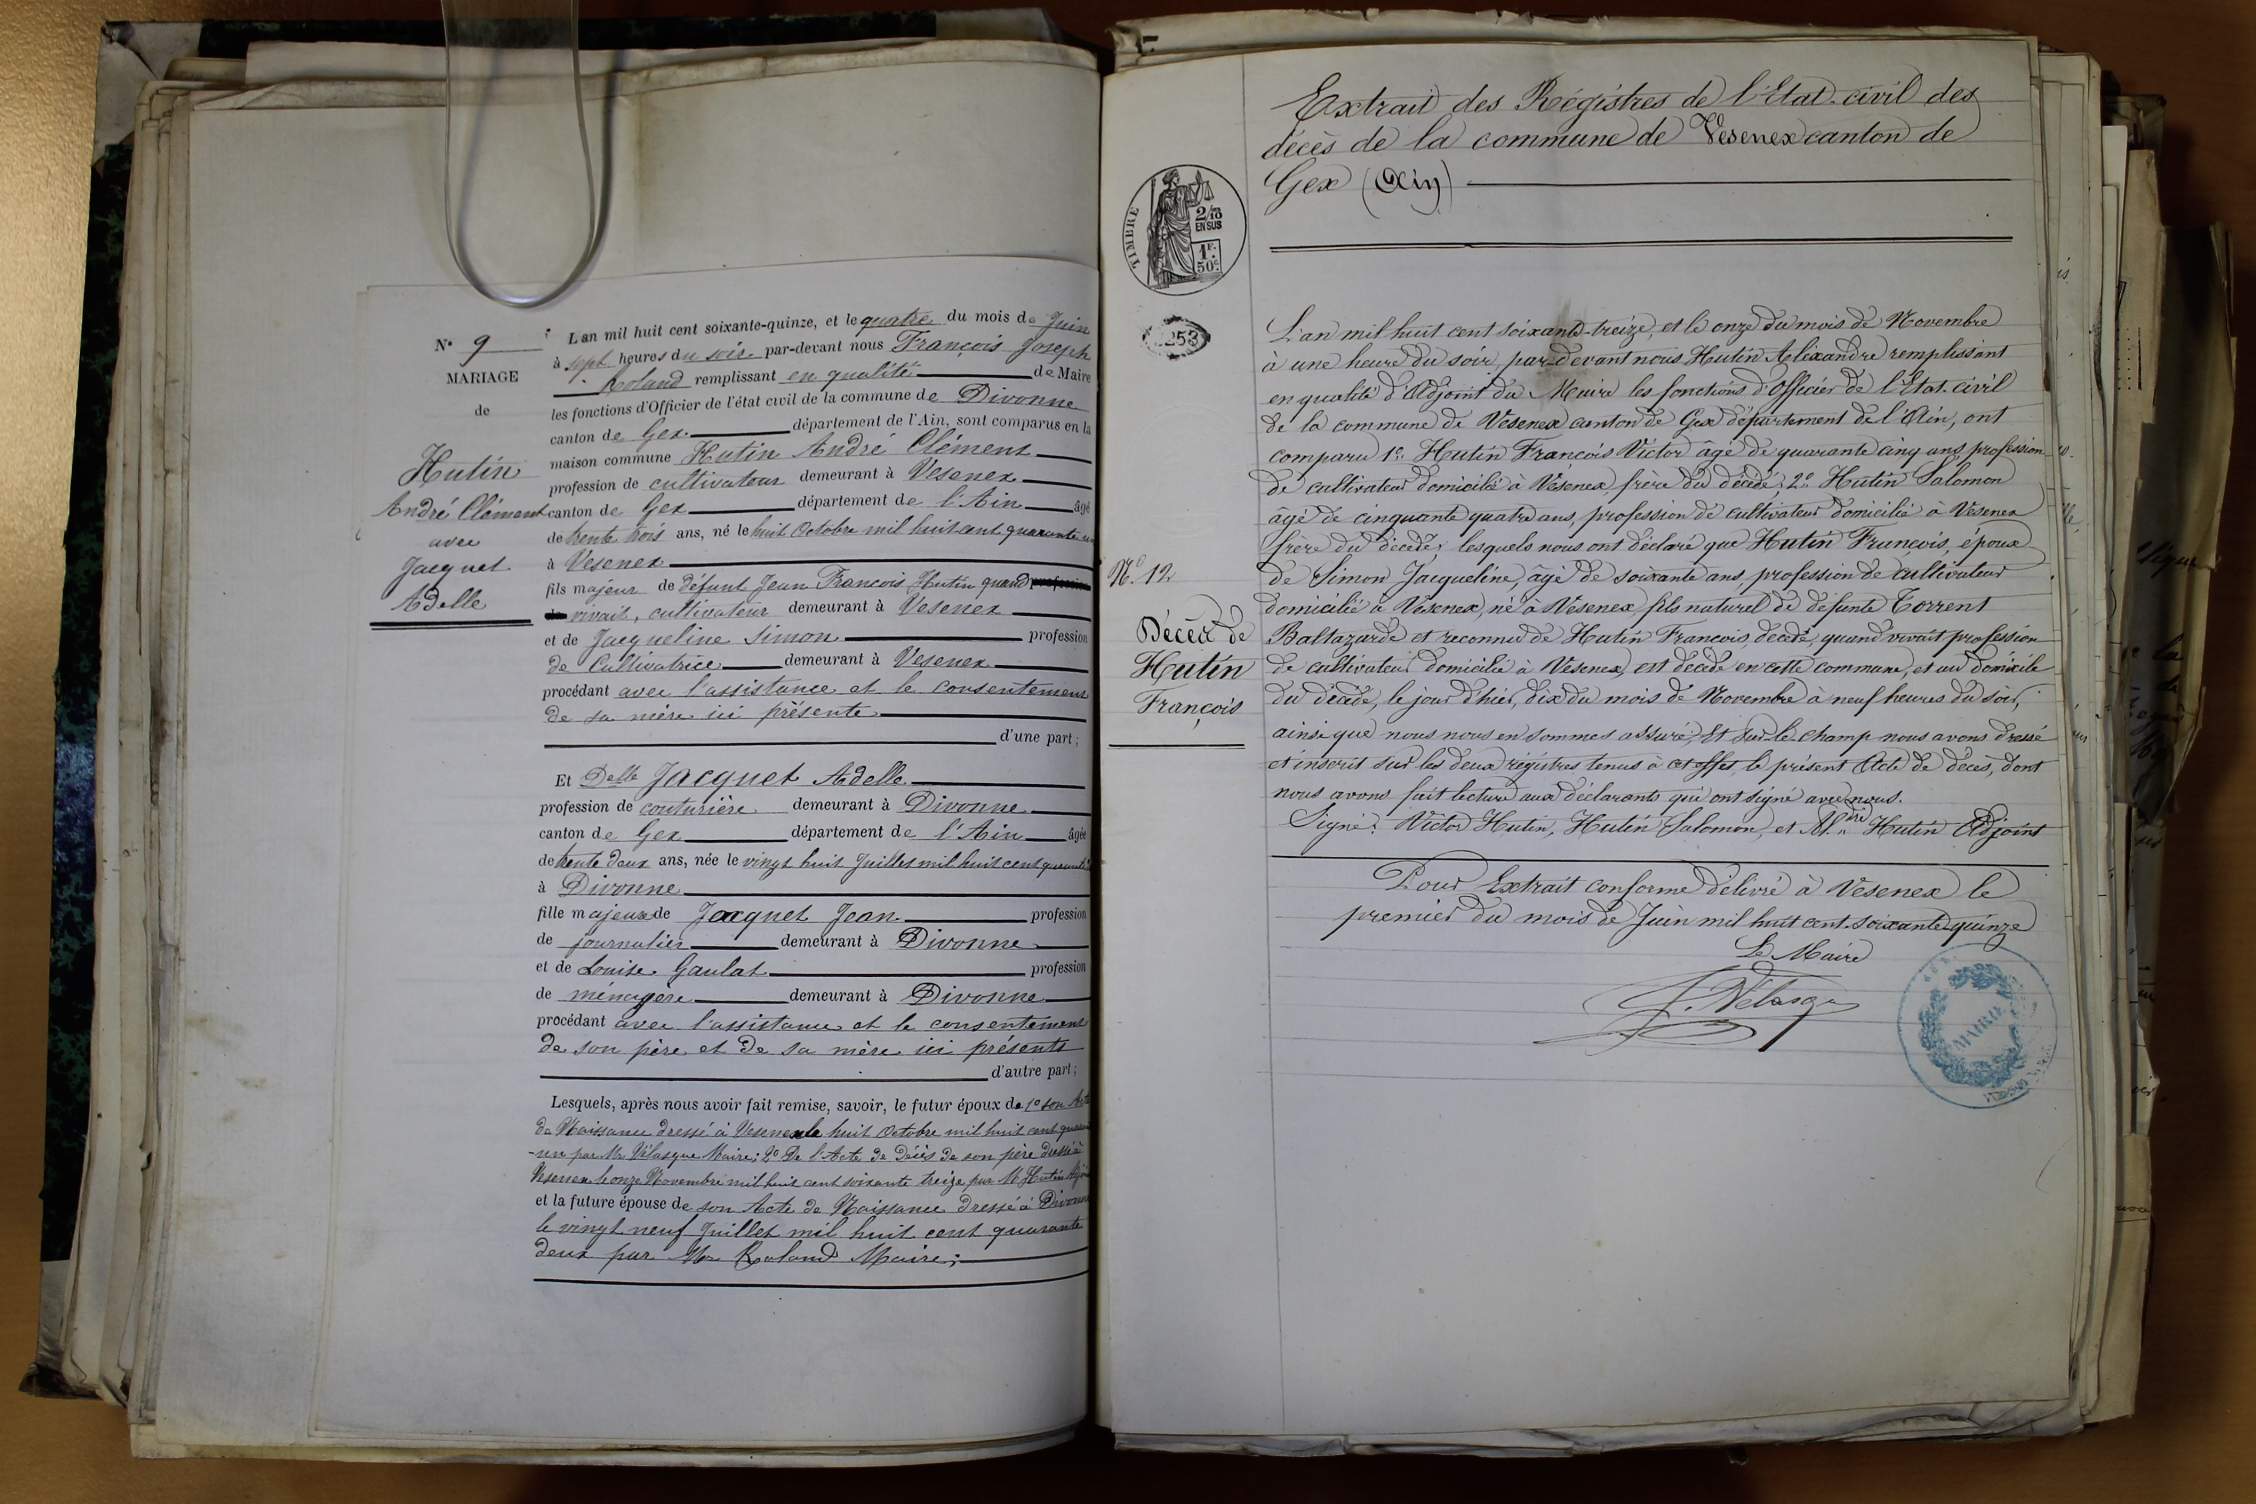 N° 9
MARIAGE
de
Hutin
André Clément
avec
Jacquet
Adelle
L'an mil huit cent soixante-quinze, et le quatre du mois de Juin
à sept heures du soir par-devant nous François Joseph
Roland remplissant en qualité de Maire
les fonctions d'Officier de l'état civil de la commune de Divonne
canton de Gex département de l'Ain, sont comparus en la
maison commune Hutin André Clément
profession de cultivateur demeurant à Vesenex
canton de Gex département de l'Ain âgé
de trente trois ans, né le huit Octobre mil huit cent quarante un
à Vesenex
fils majeur de défunt Jean François Hutin quand
vivait, cultivateur demeurant à Vesenex
et de Jacqueline Simon profession
de Cultivatrice demeurant à Vesenex
procédant avec l'assistance et le consentement
de sa mère ici présente
d'une part;
Et Delle Jacquet Adelle
profession de couturière demeurant à Divonne
canton de Gex département de l'Ain âgée
de trente deux ans, née le vingt huit Juillet mil huit cent quarante
à Divonne
fille majeure de Jacquet Jean profession
de journalier demeurant à Divonne
et de Louise Gaulat profession
de ménagère demeurant à Divonne
procédant avec l'assistance et le consentement
de son père et de sa mère ici présents
d'autre part;
Lesquels, après nous avoir fait remise, savoir, le futur époux de 1° son Acte
de Naissance dressé à Vesenex le huit Octobre mil huit cent quarante
-un par Mr Vélasque Maire; 2° De l'Acte de Décès de son père dressé à
Vesenex le onze Novembre mil huit cent soixante treize par M Hutin Adjoint
et la future épouse de son Acte de Naissance dressé à Divonne
le vingt neuf Juillet mil huit cent quarante
deux par Mr Roland Maire;
Extrait des Régistres de l'Etat-civil des
décès de la commune de Vesenex canton de
Gex (Ain)
TIMBRE
2/10
EN SUS
1F.
50c
253
N° 12
Décès de
Hutin
François
L'an mil huit cent soixante-treize, et le onze du mois de Novembre
à une heure du soir, par-devant nous Hutin Aléxandre remplissant
en qualité d'Adjoint du Maire les fonctions d'Officier de l'Etat-civil
de la commune de Vesenex canton de Gex département de l'Ain, ont
comparu 1° Hutin François Victor âgé de quarante cinq ans, profession
de cultivateur domicilié à Vésenex, frère du décédé; 2° Hutin Salomon
âgé de cinquante quatre ans, profession de cultivateur domicilié à Vesenex
frère du décédé; lesquels nous ont déclaré que Hutin François, époux
de Simon Jacqueline, âgé de soixante ans, profession de cultivateur
domicilié à Vésenex, né à Vésenex, fils naturel de défunte Torrent
Baltazarde et reconnu de Hutin François, décédé, quand vivait profession
de cultivateur domicilié à Vésenex, est décédé en cette commune, et au domicile
du décédé, le jour d'hier, dix du mois de Novembre à neuf heures du soir,
ainsi que nous nous en sommes assuré; Et sur-le-champ nous avons dressé
et inscrit sur les deux régistres tenus à cet effet, le présent Acte de décès, dont
nous avons fait lecture aux déclarants qui ont signé avec nous.
Signé: Victor Hutin, Hutin Salomon, et Al.dre Hutin Adjoint
Pour Extrait conforme délivré à Vesenex le
premier du mois de Juin mil huit cent soixante quinze
Le Maire
MAIRIE